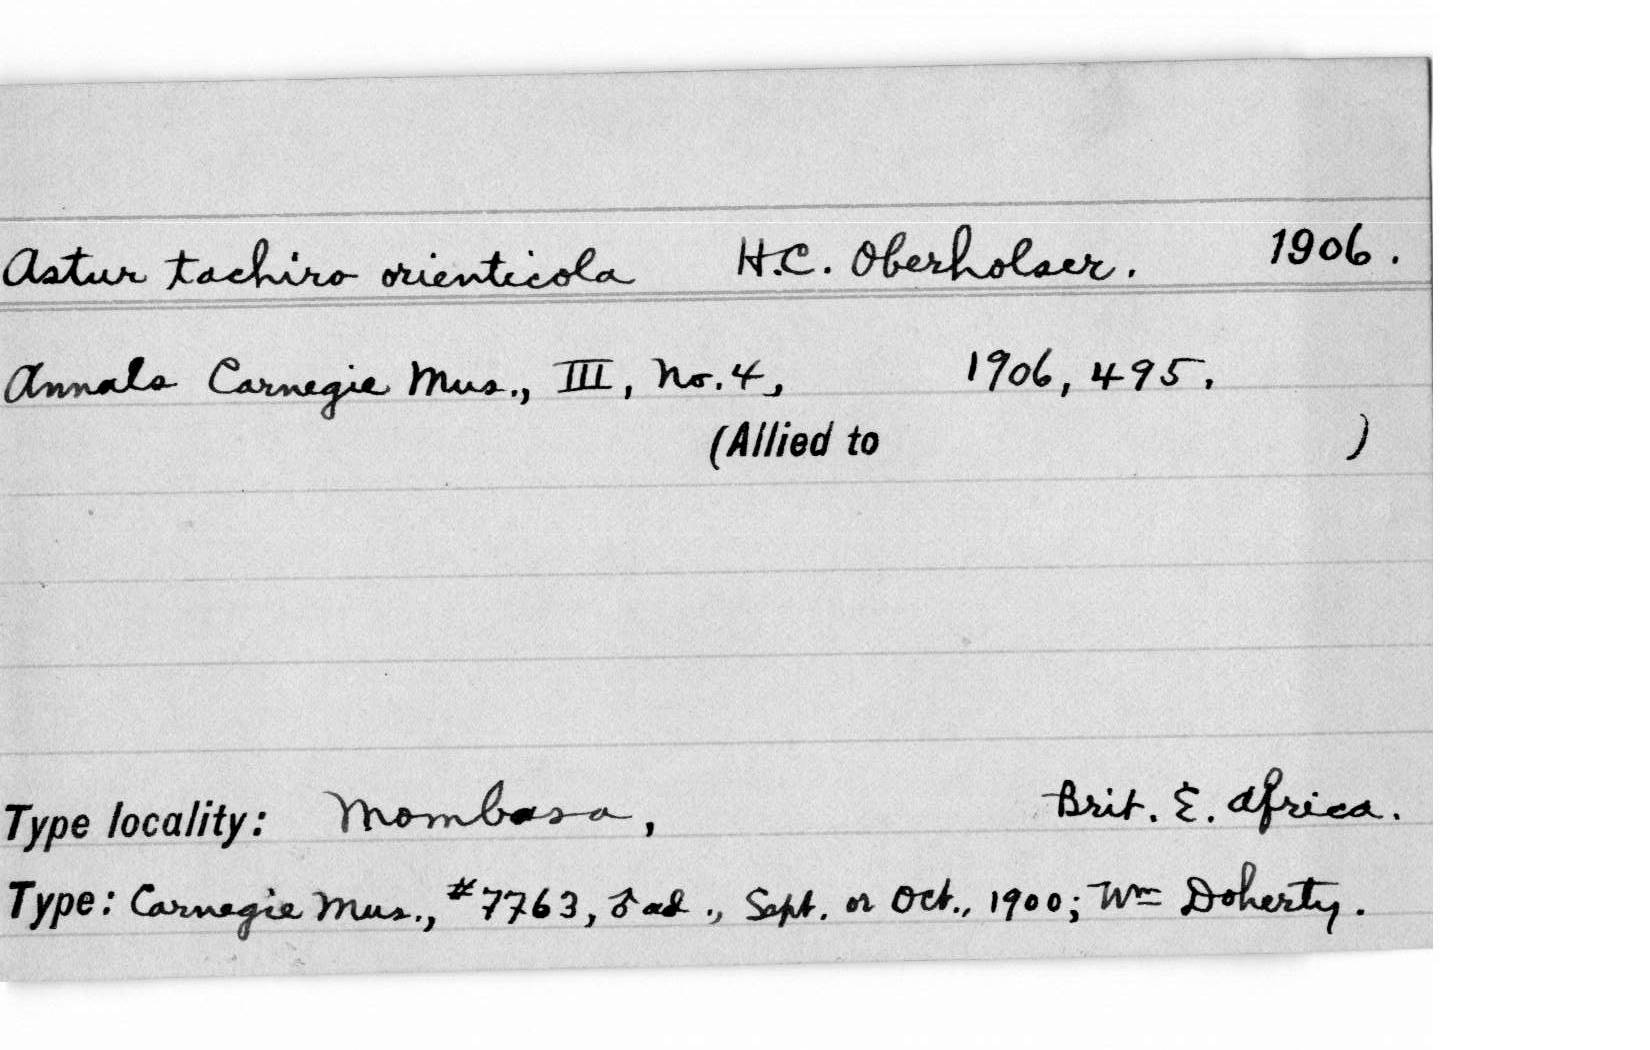 Astur tachiro orienticola H.C. Oberholser. 1906.
Annals Carnegie Mus., III, No. 4, 1906, 495.
(Allied to )
Type locality: Mombasa, Brit. E. Africa.
Type: Carnegie Mus., #7763, ♂ ad., Sept. or Oct., 1900; Wm Doherty.